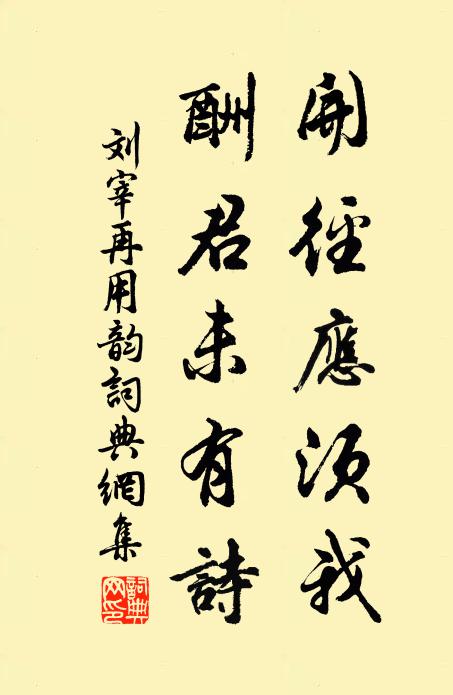 開徑應須我
酬君未有詩
刘宰再用韵詞典網集
詞典网印